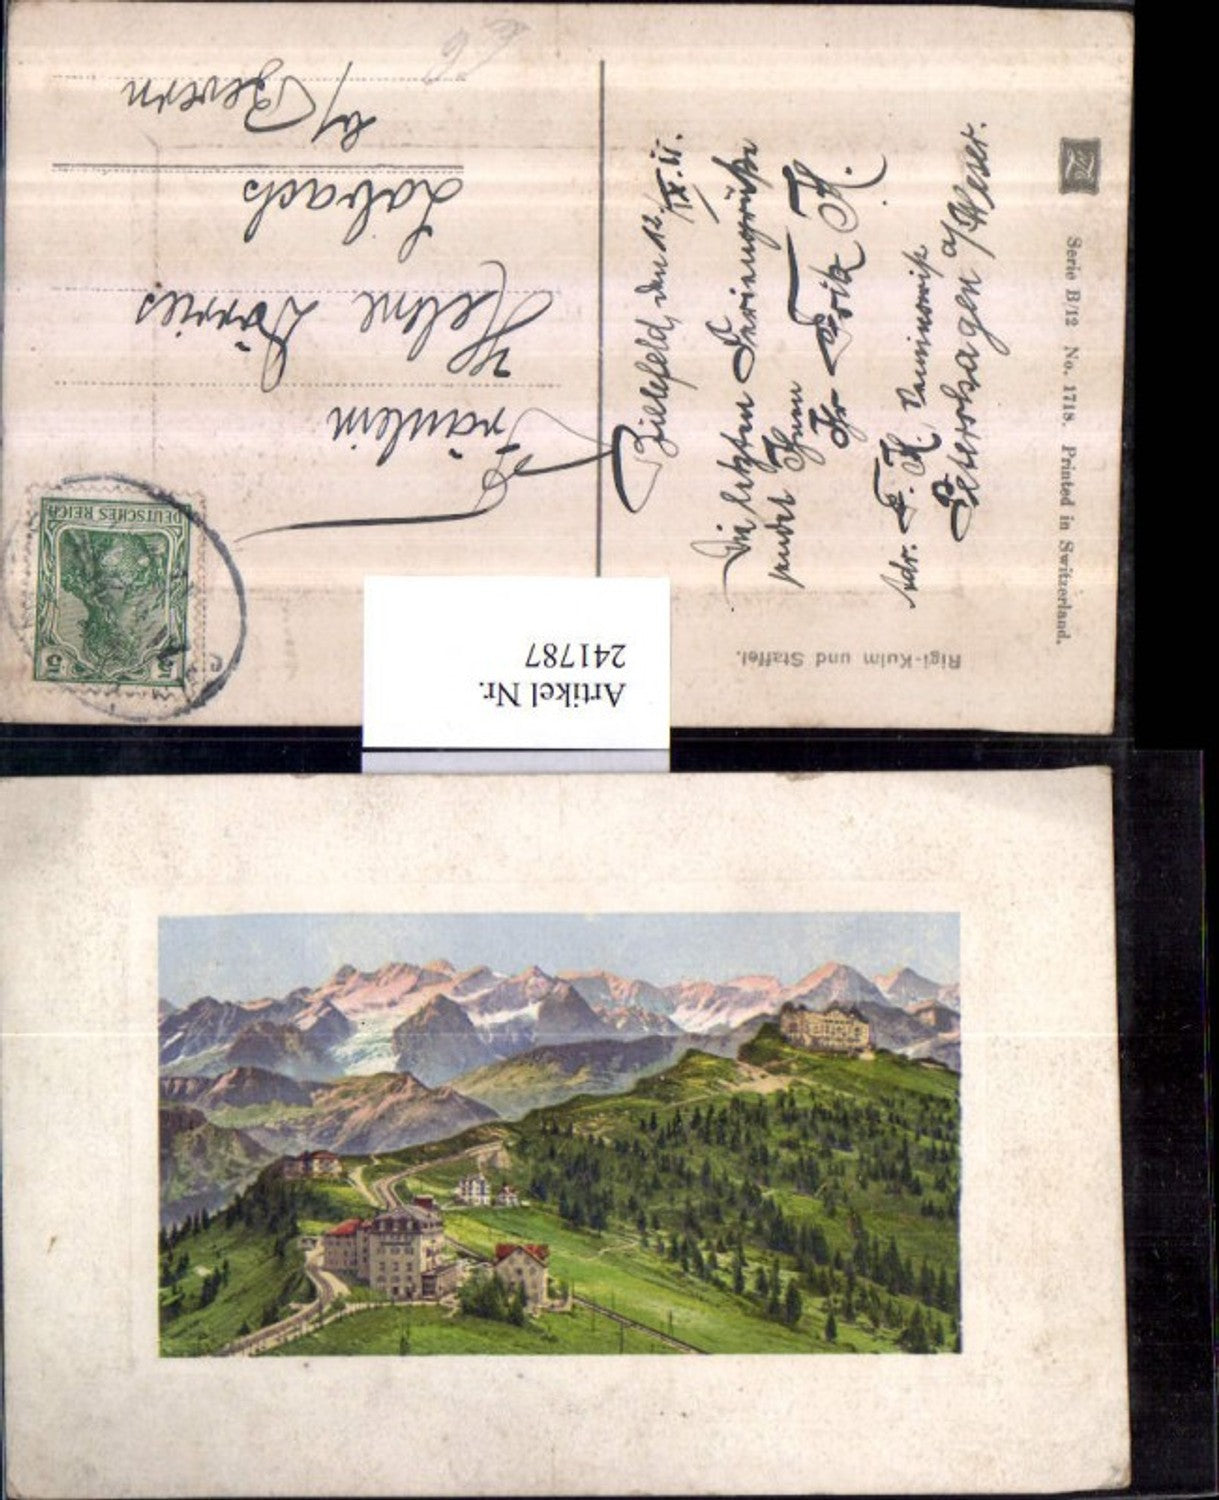 Fräulein
Helene Dörries
Lobach
b/ Bevern
DEUTSCHES REICH
5 5
Bielefeld, den 12. IX. 11.
Die letzten Feriengrüße
sendet Ihnen
Ihr Fritz H.
Adr. F. H.
Petershagen a/Weser.
Rigi-Kulm und Staffel.
Serie B/12 No. 1718. Printed in Switzerland.
Artikel Nr.
241787